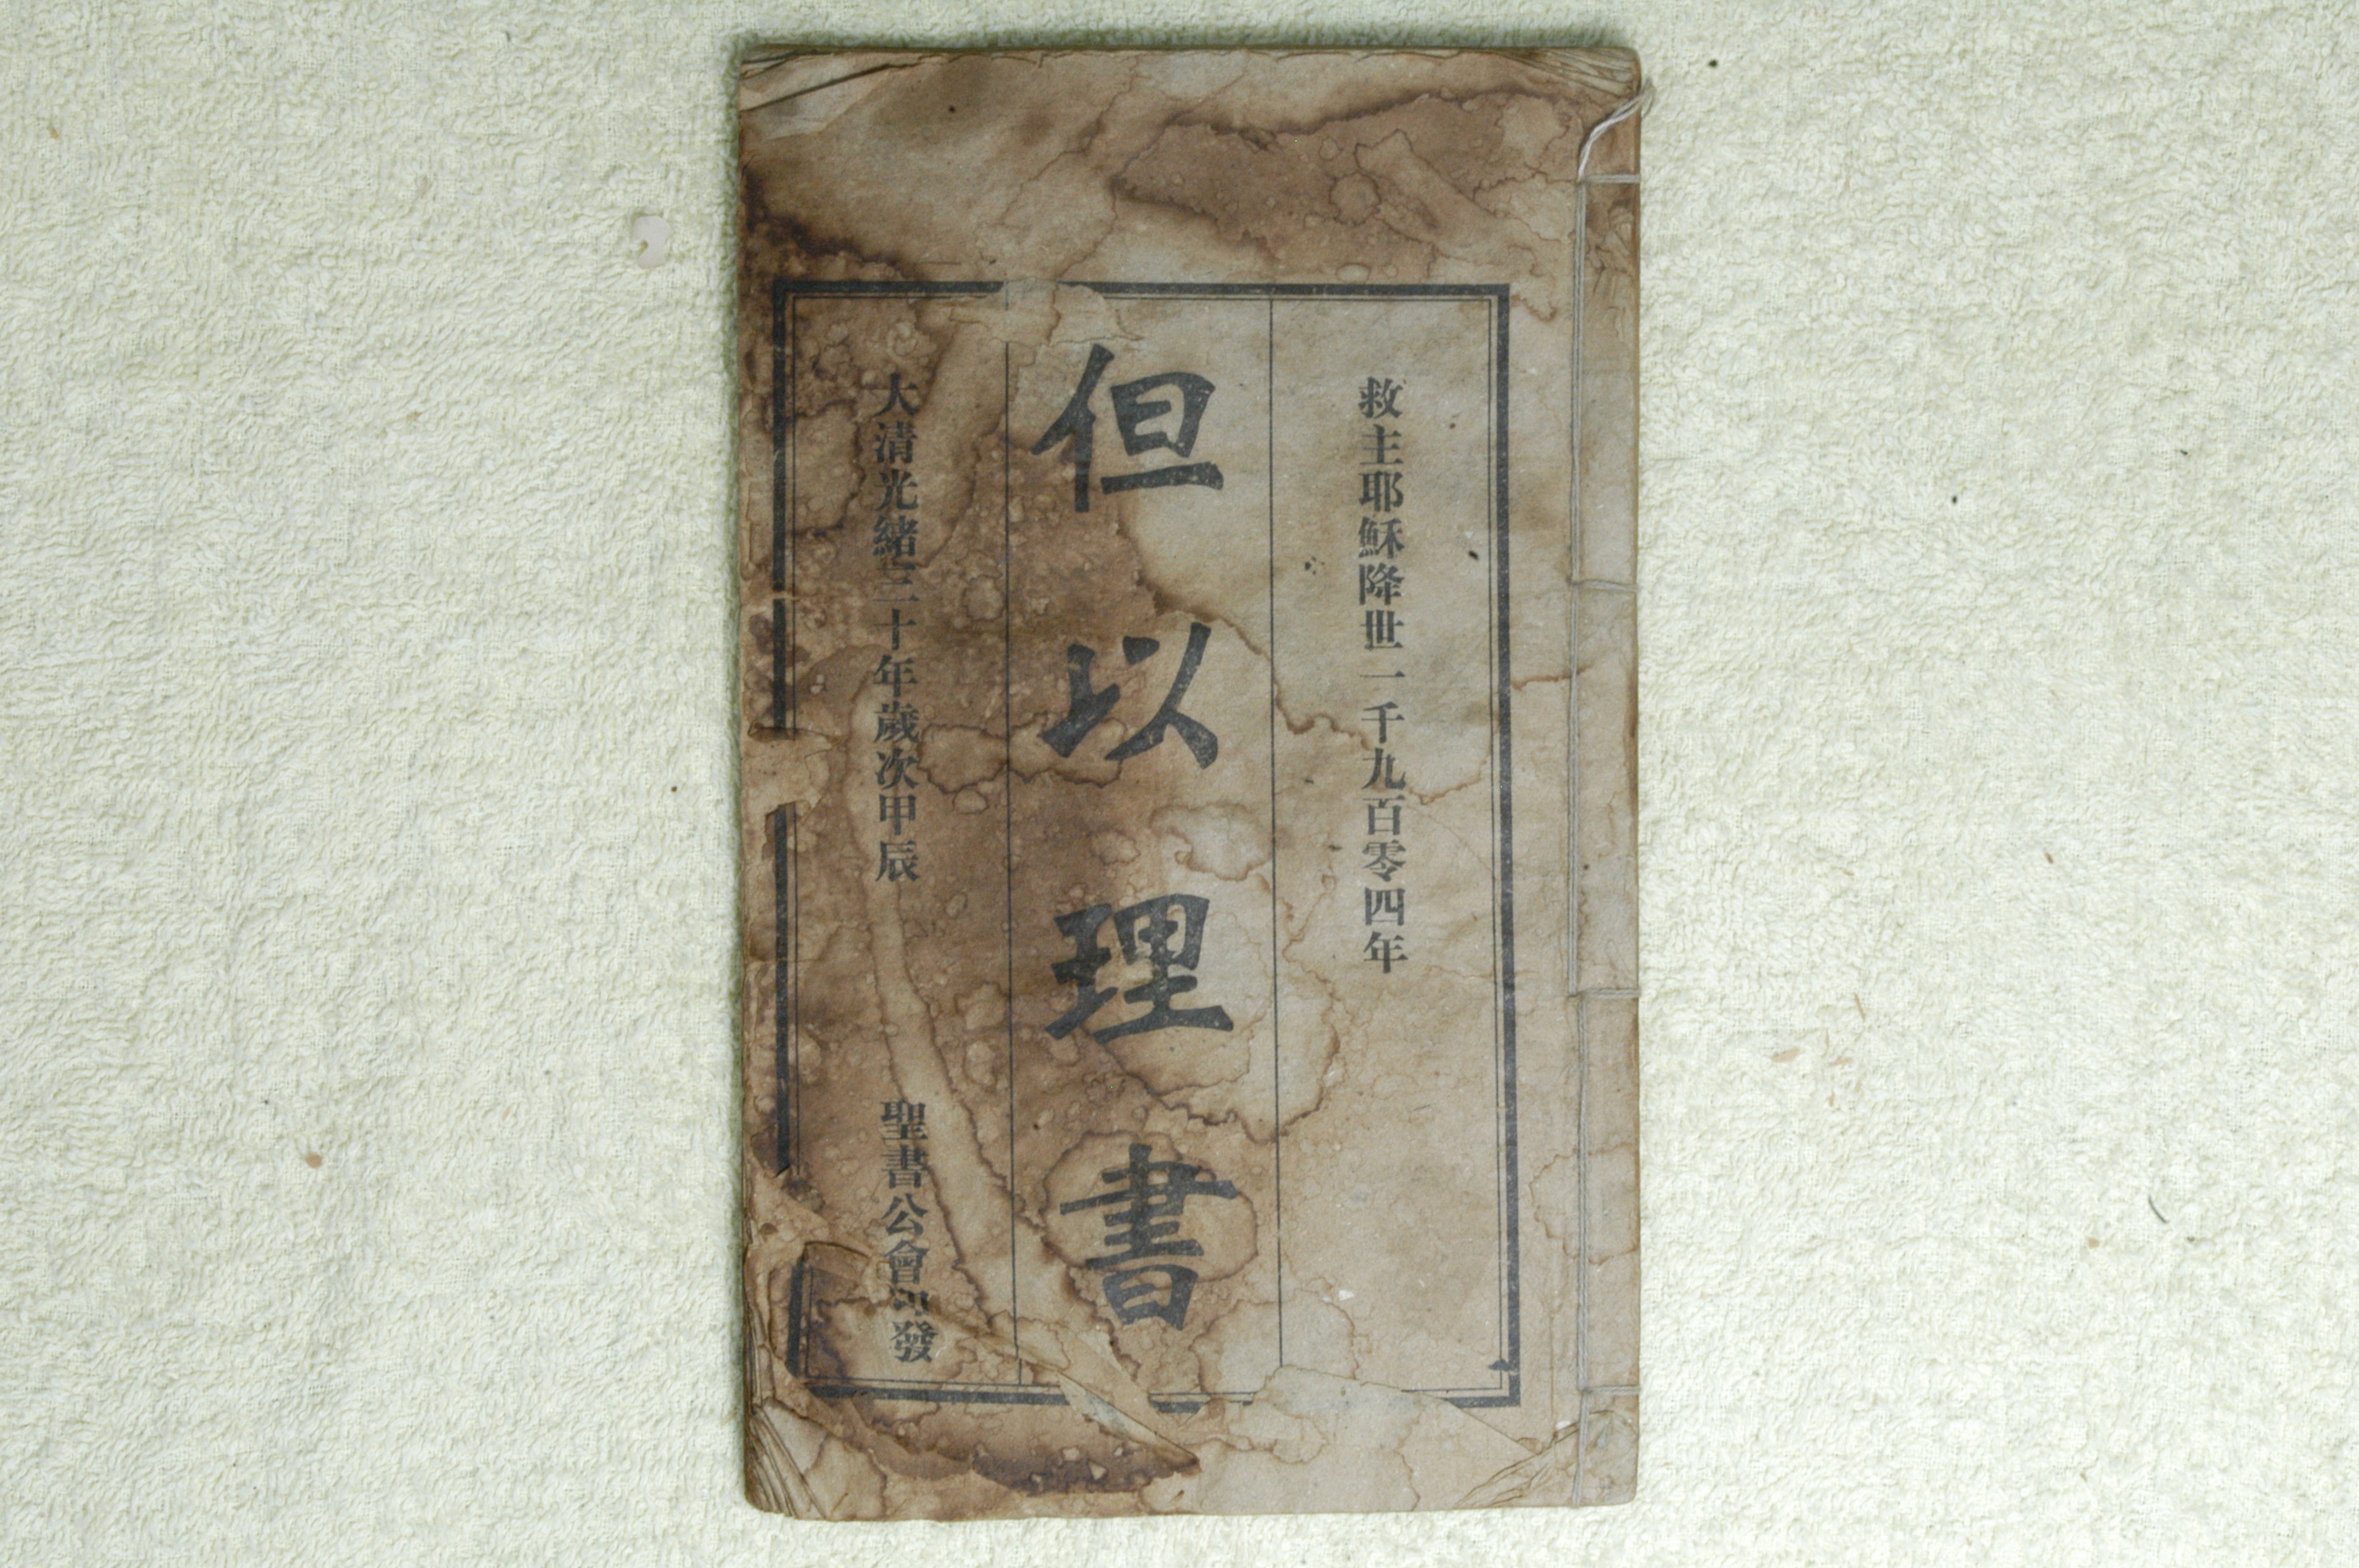 救主耶穌降世一千九百零四年
但以理書
大清光緒三十年歲次甲辰
聖書公會印發